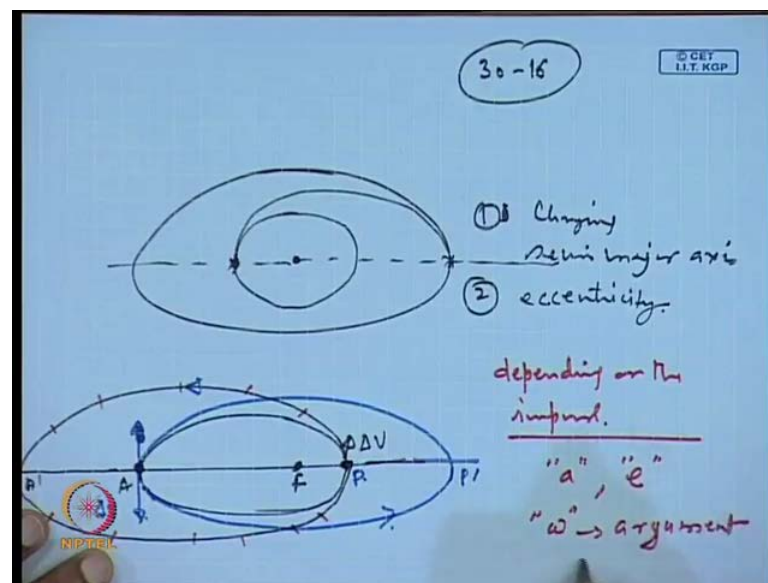 30-16
© CET
I.I.T. KGP
① Changing
semi major axis
② eccentricity.
depending on the
impuls.
"a", "e"
"ω" → argument
ΔV
A' A F P P'
NPTEL